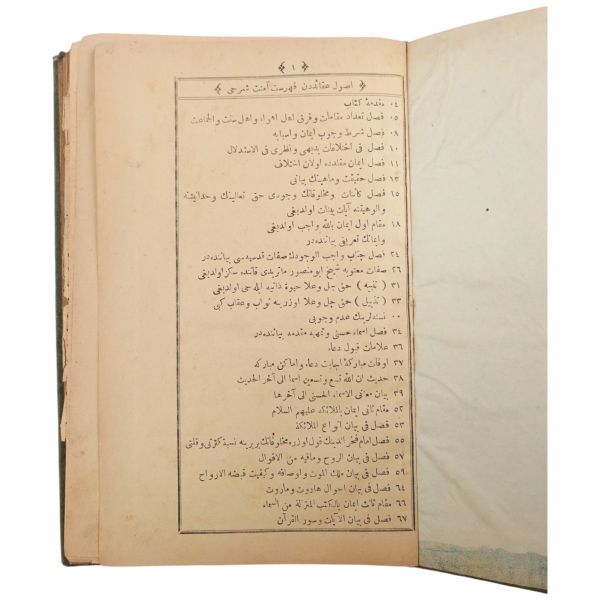 ﴿ ١ ﴾
﴿ اصول عقائددن فهرست آمنت شرحی ﴾
٠٤ مقدمهٔ کتاب
٠٥ فصل تعداد مقامات و فرق اهل اهواء و اهل سنت والجماعت
٠٨ فصل شرط وجوب ایمان و اسبابه
١٠ فصل فی اختلافات بدیهی و نظری فی الاستدلال
١١ فصل ایمان مقلدده اولان اختلاف
١٣ فصل حقیقت و ماهیتك بیانی
١٥ فصل کائنات و مخلوقاتك وجودی حق تعالینك وحدانیتنه
و الوهیتنه آیات بینات اولدیغی
١٨ مقام اول ایمان بالله واجب اولدیغی
و ایمانك تعریفی بیاننده در
٢٤ فصل جناب واجب الوجودك صفات قدسیه سی بیاننده در
٢٦ صفات معنویه شیخ ابو منصور ماتریدی قاتنده سکز اولدیغی
٣١ ( تنبیه ) حق جل وعلا حیوة ذاتیه ایله حی اولدیغی
٣٣ ( تذییل ) حق جل وعلا اوزرینه ثواب و عقاب کبی
٠٠ نسنه لرینك عدم وجوبی
٣٤ فصل اسماء حسنی و تمهید مقدمه بیاننده در
٣٦ علامات قبول دعاء
٣٧ اوقات مبارکهٔ اجابت دعاء و اماکن مبارکه
٣٨ حدیث ان الله تسع و تسعین اسما الی آخر الحدیث
٣٩ بیان معانی الاسماء الحسنی الی آخرها
٥٢ مقام ثانی ایمان بالملائکه علیهم السلام
٥٣ فصل فی بیان انواع الملائکة
٥٥ فصل امام فخر الدینك قولی اوزره مخلوقاتك بربرینه نسبة کثرتی و قلتی
٥٧ فصل فی بیان الروح و مافیه من الاقوال
٥٩ فصل فی بیان ملك الموت و اوصافه و کیفیت قبضه الارواح
٦٤ فصل فی بیان احوال هاروت و ماروت
٦٦ مقام ثالث ایمان بالکتب المنزلة من السماء
٦٧ فصل فی بیان الآیات و سور القرآن